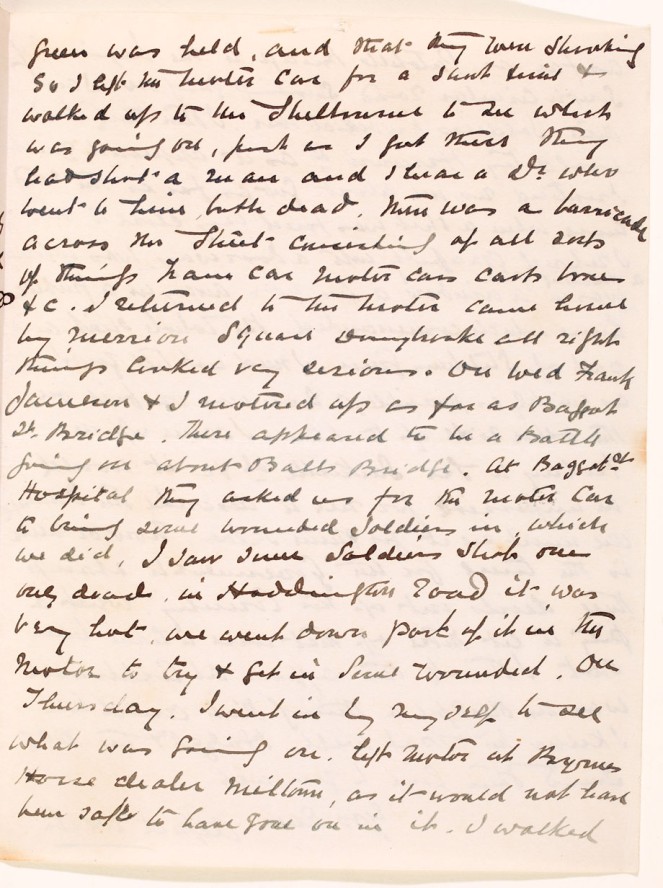 green was held, and that they were shooking
So I left the motor car for a short time &
walked up to the Shelbourne to see which
was going on, just as I got there they
had shot a man and I hear a Dr. who
went to him, both dead, there was a barricade
across the Street consisting of all sorts
of things Tram car motor cars carts boxes
&c. I returned to the motor came home
by Merrion Square Donnybrooke all right
things looked very serious. On Wed Frank
Jameson & I motored up as far as Baggot
St. Bridge. There appeared to be a Battle
going on about Balls Bridge. At Baggot St
Hospital they asked us for the motor Car
to bring some wounded soldiers in, which
we did, I saw some Soldiers shot one
only dead, in Haddington Road it was
very hot, we went down part of it in the
motor to try & get in some wounded. On
Thursday. I went in by myself to see
what was going on. left motor at Byrnes
Horse dealer Milltown, as it would not have
been safe to have gone on in it. I walked